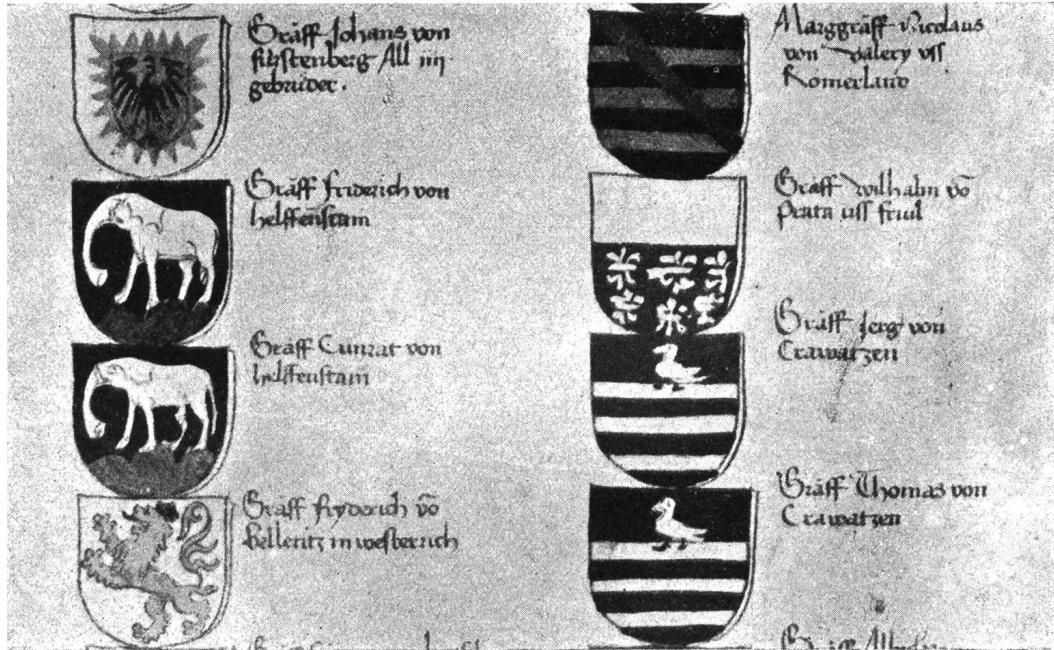 Gräff Johans von
fürstenberg All iiij
gebruder.
Gräff friderich von
helffenstain
Gräff Cunrat von
helffenstain
Gräff fryderich vō
helleritz in westerrich
Marggräff Nicolaus
von Valery uss
Romerland
Gräff Wilhalm vō
Prata uss friul
Gräff Jerg von
Crawatzen
Gräff Thomas von
Crawatzen